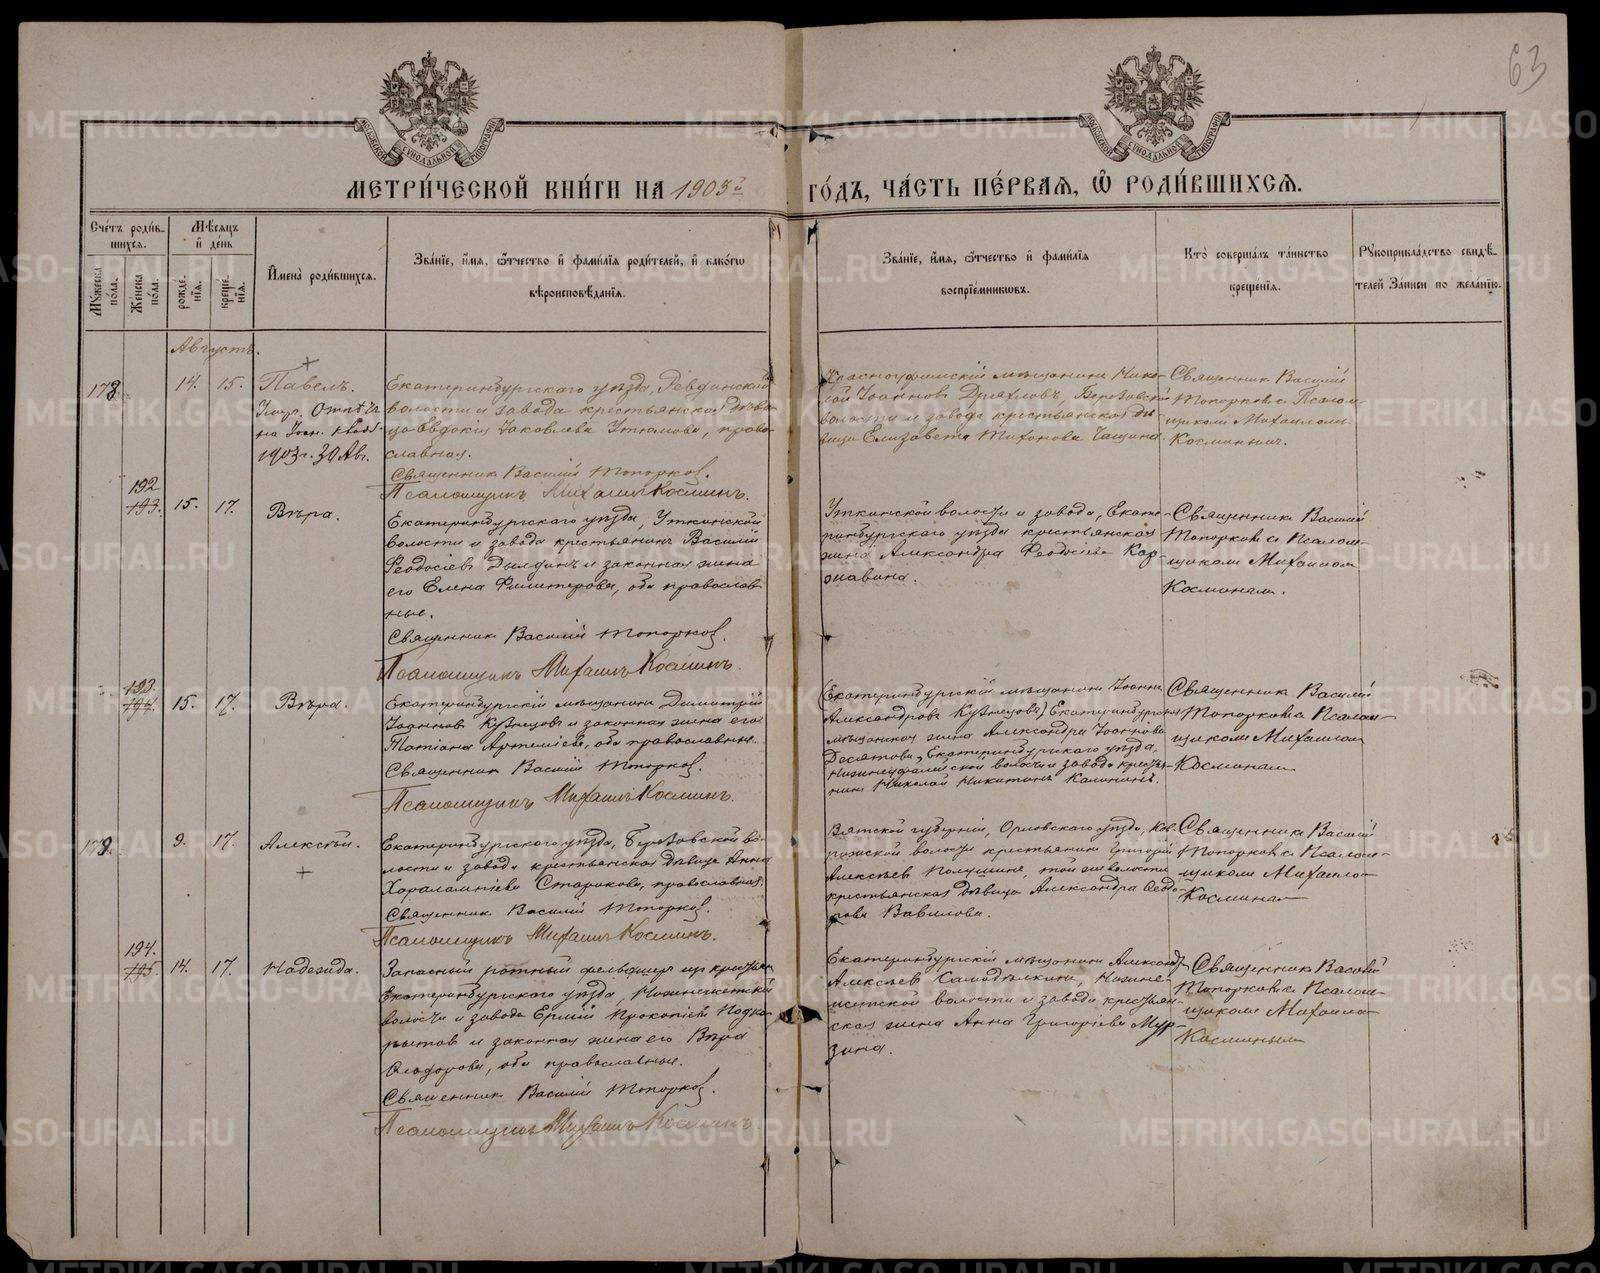 63
МОСКОВСКОЙ СУНОДАЛЬНОЙ ТИПОГРАФІИ
МОСКОВСКОЙ СУНОДАЛЬНОЙ ТИПОГРАФІИ
МЕТРИ́ЧЕСКОЙ КНИ́ГИ НА 1903й ГО́ДЪ, ЧА́СТЬ ПЕ́РВАЯ, Ѡ РОДИ́ВШИХСЯ.
Сче́тъ роди́вшихся.
Му́жеска по́ла.
Же́нска по́ла.
Мѣ́сяцъ и де́нь
рожде́нія.
креще́нія.
Имена̀ роди́вшихся.
Зва́ніе, и́мя, ѻ́тчество и фами́лія роди́телей, и како́гѡ
вѣроисповѣ́данія.
Зва́ніе, и́мя, ѻ́тчество и фами́лія
воспріе́мникѡвъ.
Кто̀ соверша́лъ та́инство
креще́нія.
Рукоприкла́дство свидѣ́телей за́писи по жела́нію.
Августъ.
178. 14. 15. Павелъ.
1903 г. 30 Ав.
Екатеринбургскаго уѣзда, Ревдинской
волости и завода крестьянская дѣви-
ца Евдокія Іаковлева Утюмова, право-
славная.
Священник Василій Топорков.
Псаломщикъ Михаилъ Косминъ.
Красноуфимскій мѣщанинъ Нико-
лай Іоаннов Дряхлов, Березовской
волости и завода крестьянская дѣ-
вица Елизавета Тихонова
Священник Василій
Топорков с Псалом-
щиком Михаилом
Косминым.
192
193. 15. 17. Вѣра.
Екатеринбургскаго уѣзда, Уткинской
волости и завода крестьянинъ Василій
Феодосіев Дылдинъ и законная жена
его Елена Филитерова, оба православ-
ные.
Священник Василій Топорков.
Псаломщикъ Михаилъ Косминъ.
Уткинской волости и завода, Екате-
ринбургскаго уѣзда крестьянская
жена Александра Феодосіева Кор-
онавина.
Священник Василій
Топорков с Псалом-
щиком Михаилом
Косминым.
193.
194. 15. 17. Вѣра.
Екатеринбургскій мѣщанинъ Димитрій
Іоаннов Кузнецов и законная жена его
Татіана Артеміева, оба православные.
Священник Василій Топорков.
Псаломщикъ Михаилъ Косминъ.
Екатеринбургскій мѣщанинъ Іоаннъ
Александров Кузнецовъ, Екатеринбургская
мѣщанская жена Александра Іоаннова
Десятова, Екатеринбургскаго уѣзда,
Нижнеуфалейской волости и завода крестья-
нинъ Николай Никитинъ Калининъ.
Священник Василій
Топорков с Псалом-
щиком Михаилом
Косминым
178. 9. 17. Алексѣй.
Екатеринбургскаго уѣзда, Березовской во-
лости и завода крестьянская дѣвица Анна
Харалампіева Старикова, православная.
Священник Василій Топорков.
Псаломщикъ Михаилъ Косминъ.
Вятской губерніи, Орловскаго уѣзда,
волости крестьянинъ Григорій
Алексѣев Полушинъ, той же волости
крестьянская дѣвица Александра Феодо-
рова Вавилова.
Священник Василій
Топорков с Псалом-
щиком Михаилом
Косминым
194.
195. 14. 17. Надежда.
Запасный ротный фельдшер из крестьян
Екатеринбургскаго уѣзда, Нижнеисетской
волости и завода Ермій Прокопіев Подко-
рытов и законная жена его Вѣра
Феодорова, оба православные.
Священник Василій Топорков.
Псаломщикъ Михаилъ Косминъ
Екатеринбургскій мѣщанинъ Александр
Алексѣев Самодѣлкинъ, Нижне-
исетской волости и завода крестьян-
ская жена Анна Григоріева Мур-
зина.
Священник Василій
Топорков с Псалом-
щиком Михаилом
Косминым